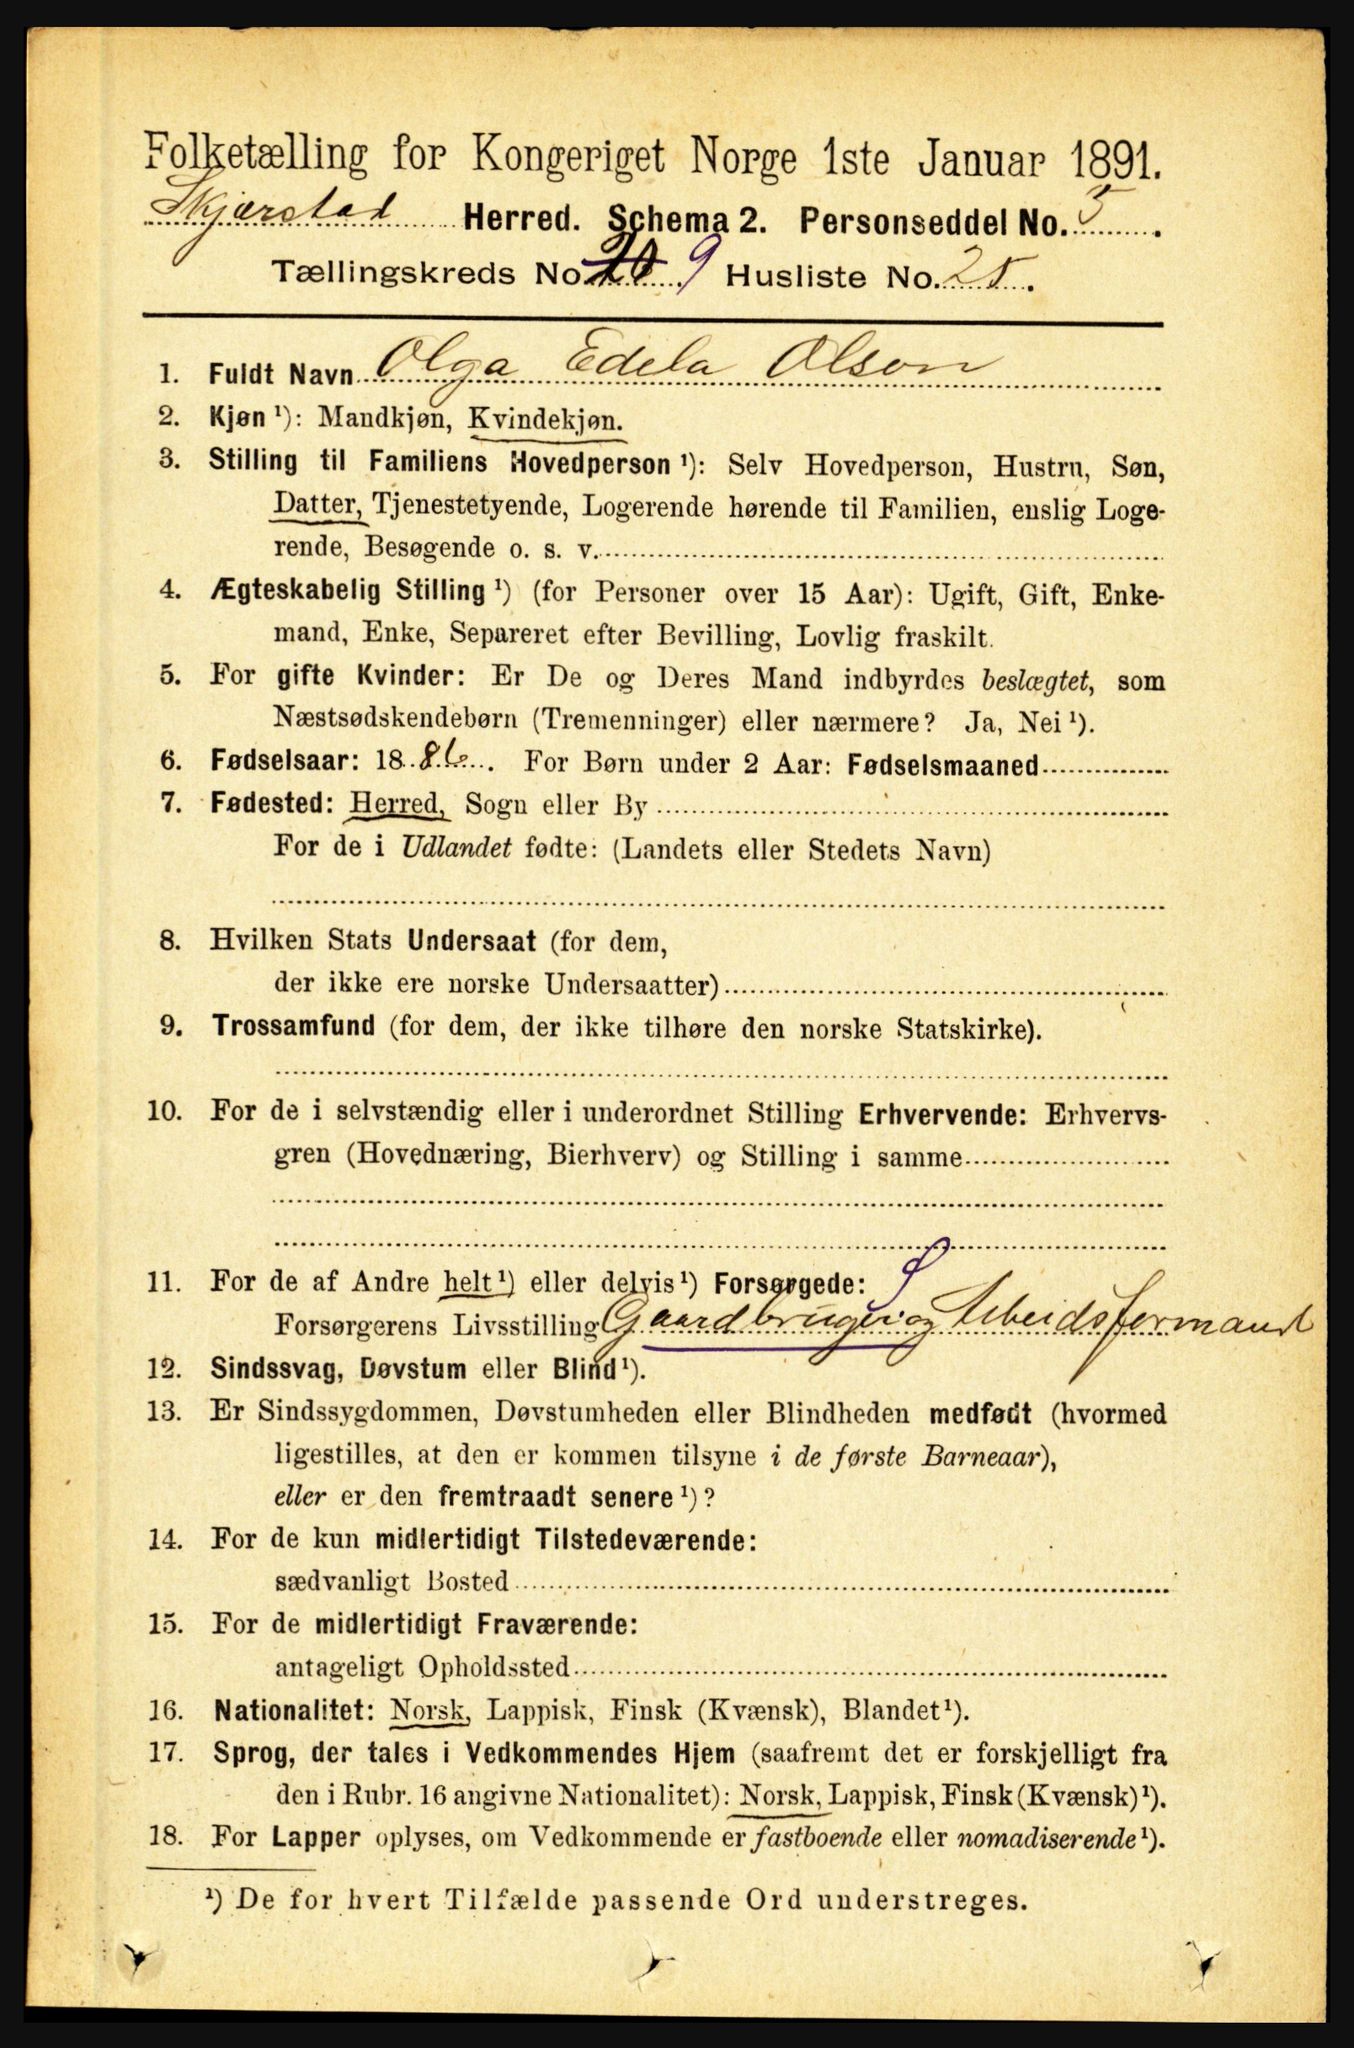 Folketælling for Kongeriget Norge 1ste Januar 1891.
Skjærstad Herred. Schema 2. Personseddel No. 5.
Tællingskreds No. 9 Husliste No. 25.
1. Fuldt Navn Olga Edela Olsen
2. Kjøn ¹): Mandkjøn, Kvindekjøn.
3. Stilling til Familiens Hovedperson ¹): Selv Hovedperson, Hustru, Søn,
Datter, Tjenestetyende, Logerende hørende til Familien, enslig Loge-
rende, Besøgende o. s. v.
4. Ægteskabelig Stilling ¹) (for Personer over 15 Aar): Ugift, Gift, Enke-
mand, Enke, Separeret efter Bevilling, Lovlig fraskilt.
5. For gifte Kvinder: Er De og Deres Mand indbyrdes beslægtet, som
Næstsødskendebørn (Tremenninger) eller nærmere? Ja, Nei ¹).
6. Fødselsaar: 1886. For Børn under 2 Aar: Fødselsmaaned
7. Fødested: Herred, Sogn eller By
For de i Udlandet fødte: (Landets eller Stedets Navn)
8. Hvilken Stats Undersaat (for dem,
der ikke ere norske Undersaatter)
9. Trossamfund (for dem, der ikke tilhøre den norske Statskirke).
10. For de i selvstændig eller i underordnet Stilling Erhvervende: Erhvervs-
gren (Hovednæring, Bierhverv) og Stilling i samme
11. For de af Andre helt ¹) eller delvis ¹) Forsørgede: S
Forsørgerens Livsstilling Gaardbruger og Arbeidsformand
12. Sindssvag, Døvstum eller Blind ¹).
13. Er Sindssygdommen, Døvstumheden eller Blindheden medfødt (hvormed
ligestilles, at den er kommen tilsyne i de første Barneaar),
eller er den fremtraadt senere ¹)?
14. For de kun midlertidigt Tilstedeværende:
sædvanligt Bosted
15. For de midlertidigt Fraværende:
antageligt Opholdssted
16. Nationalitet: Norsk, Lappisk, Finsk (Kvænsk), Blandet ¹).
17. Sprog, der tales i Vedkommendes Hjem (saafremt det er forskjelligt fra
den i Rubr. 16 angivne Nationalitet): Norsk, Lappisk, Finsk (Kvænsk) ¹).
18. For Lapper oplyses, om Vedkommende er fastboende eller nomadiserende ¹).
¹) De for hvert Tilfælde passende Ord understreges.